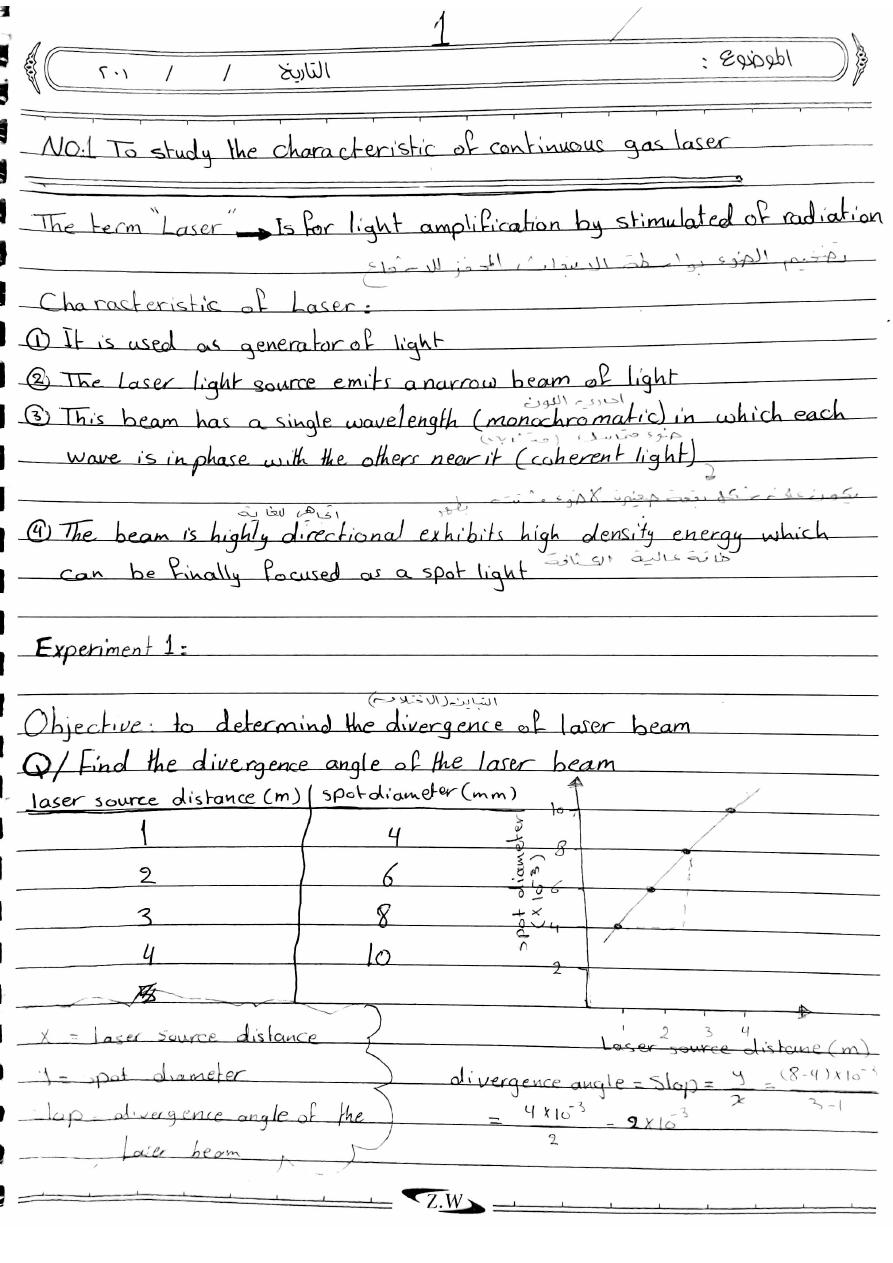 1
الموضوع :
التاريخ / / ٢٠١
NO.1 To study the characteristic of continuous gas laser
The term "Laser" → Is for light amplification by stimulated of radiation
تضخيم الضوء بواسطة الانبعاث المحفز للاشعاع
Characteristic of Laser:
① It is used as generator of light
② The Laser light source emits a narrow beam of light
احادي اللون
③ This beam has a single wavelength (monochromatic) in which each
wave is in phase with the others near it (coherent light)
④ The beam is highly directional exhibits high density energy which
can be finally focused as a spot light
طاقة عالية الكثافة
Experiment 1:
Objective: to determind the divergence of laser beam
Q/ Find the divergence angle of the laser beam
laser source distance (m) spot diameter (mm)
1 4
2 6
3 8
4 10
spot diameter (×10-3)
10
8
6
4
2
1 2 3 4
Laser source distane (m)
x = laser source distance
y = spot diameter
slap = divergence angle of the
Laier beam
divergence angle = Slop = y/x = (8-4)×10-3/3-1
= 4×10-3/2 = 2×10-3
Z.W